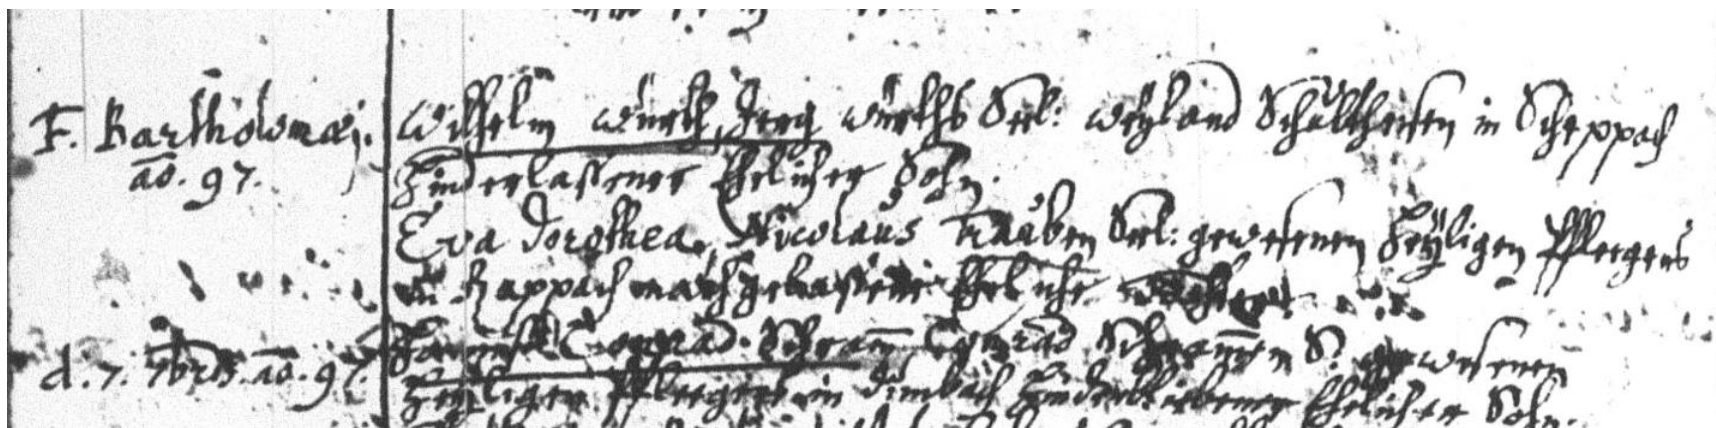 F. Bartholomæj. Wilhelm Würth, Jerg Würths Seel: weyland Schultheisen in Scheppach
aō. 97. Hinderlaßener Ehelicher Sohn.
Eva Dorothea, Nicolaus Trauben Seel: gewesenen Heyligen Pflegers
in Rappach nachgelaßene Eheliche Tochter
d. 7. 7bris. aō. 97. Conrad Schram̄ Conrad Schram̄en S. gewesenen
Heyligen Pflegers in Dimbach Hinderbliebener Ehelicher Sohn.